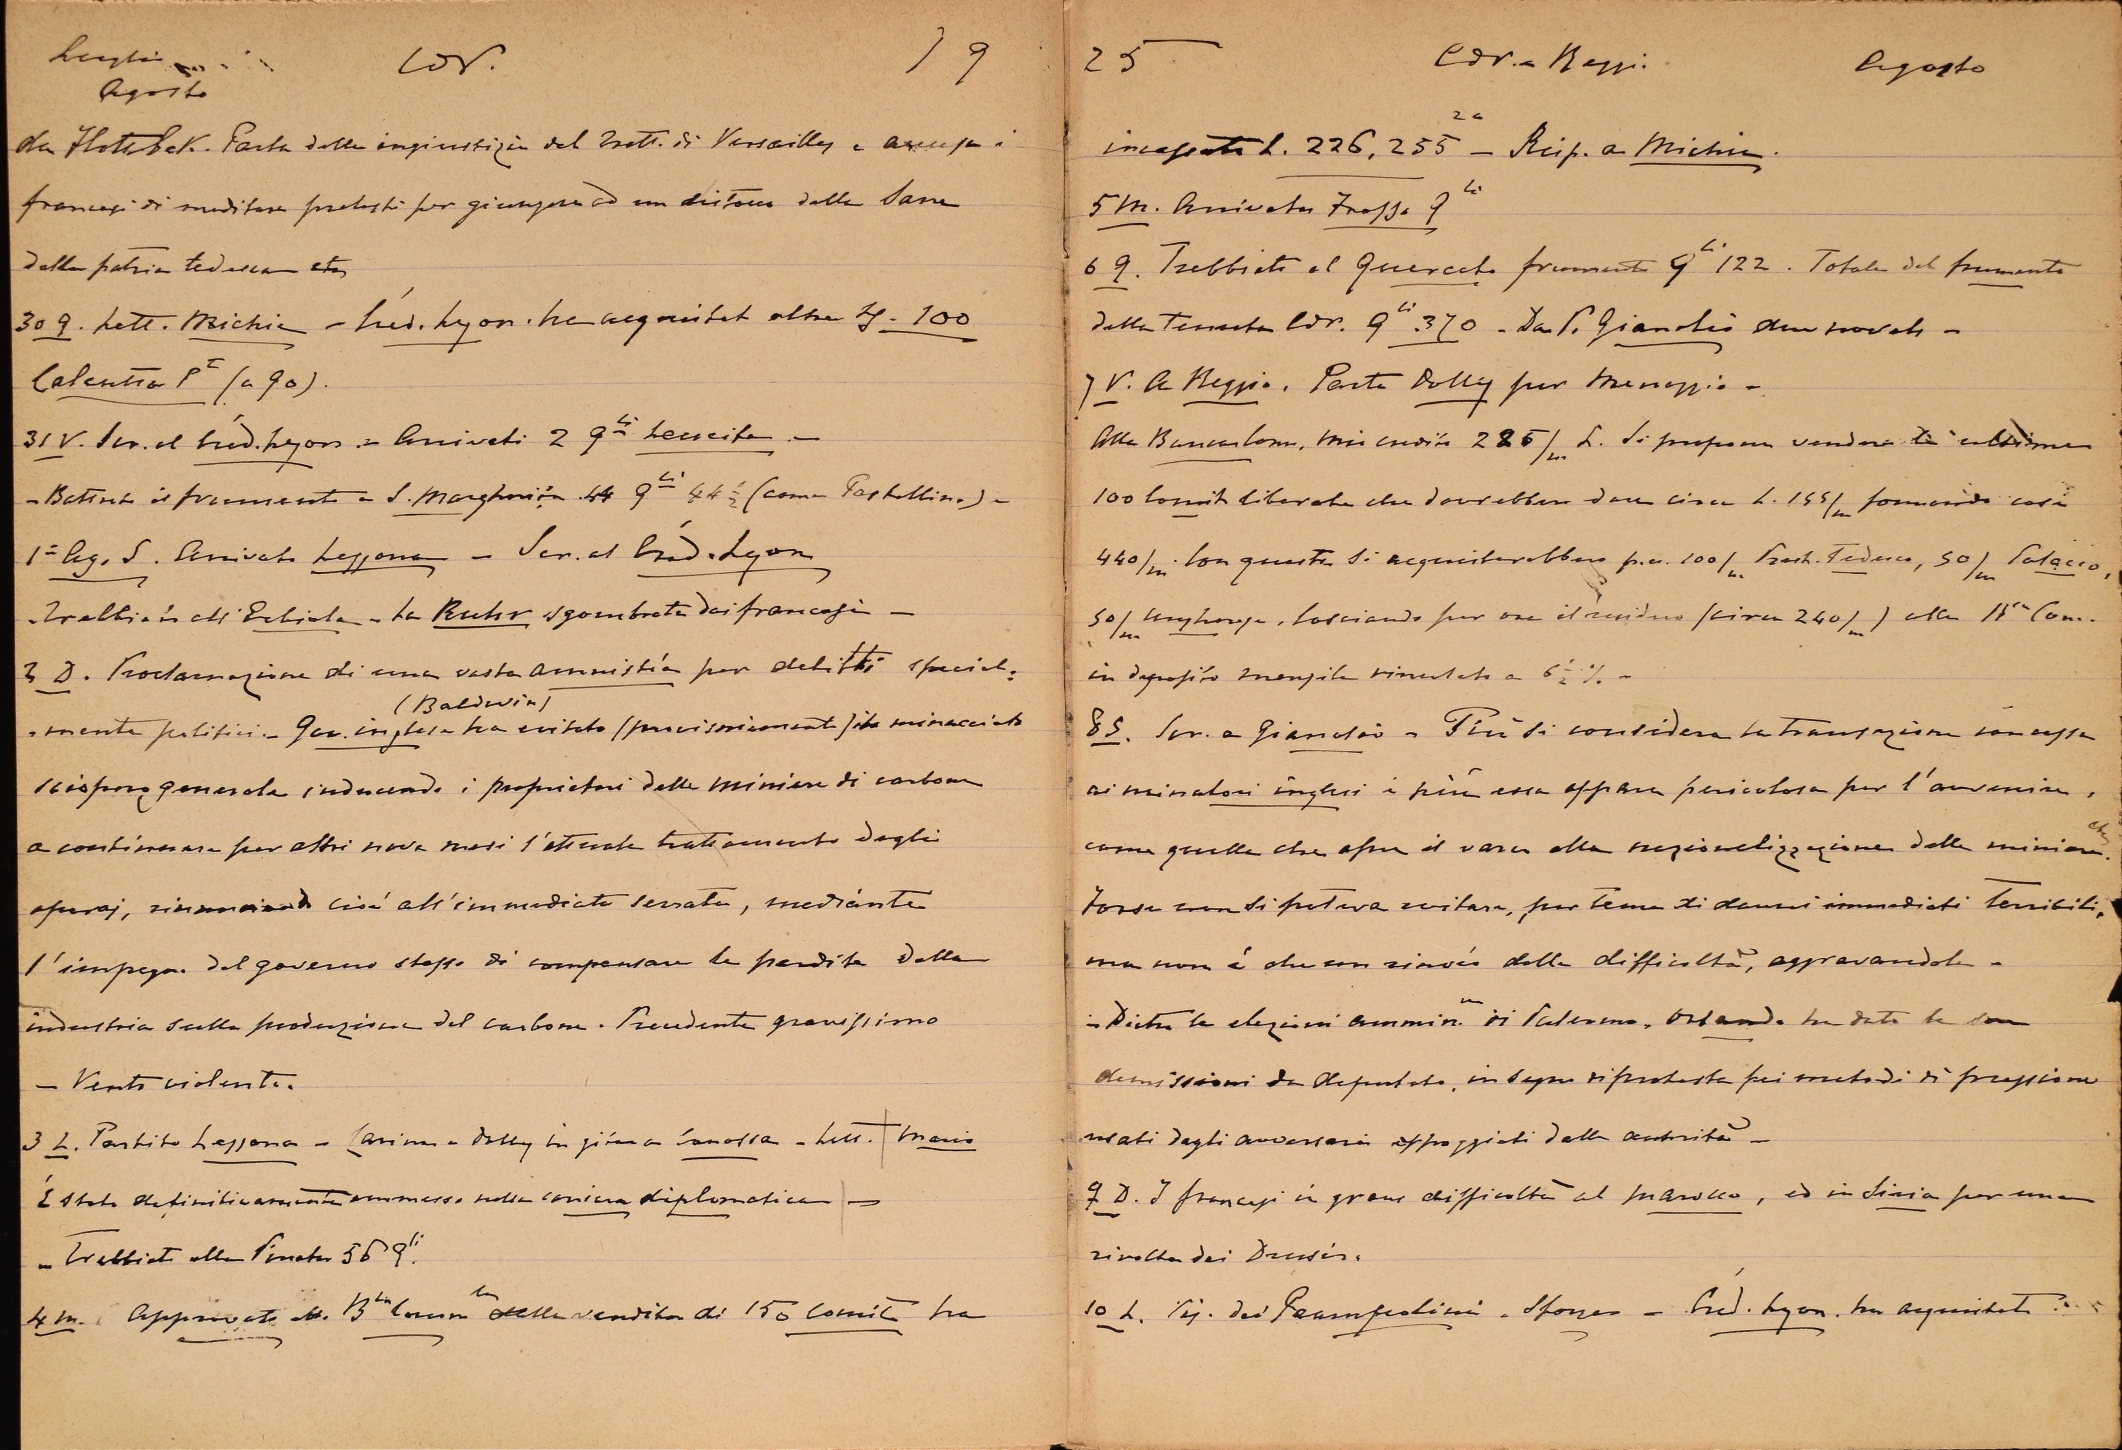 Luglio
Agosto
Cdr. 19
da Parla della ingiustizia del Tratt. di Versailles e accusa i
francesi di meditare pretesti per giungere ad un della Sarre
della patria tedesca etc
30 g. Lett. Michie – Créd. Lyon. ha acquistat altre Lg. 100
Calcutta (a 90).
31 V. Scr. al Créd. Lyon. – Arrivati 2 qli Leucite –
– Battuto il frumento a S. Margherita 44 qli 44 ½ (come Pastellino) –
1º Ag. S. Arrivato Lessona – Scr. al Créd. Lyon
– Trebbiato all' – La Ruhr sgombrata dai francesi –
2 D. Proclamazione di una vasta amnistia per delitti special:
(Baldwin)
:mente politici – Gov. inglese ha evitato (provvisoriamente) lo minacciato
sciopero generale inducendo i proprietari delle miniere di carbone
a continuare per altri nove mesi l'attuale trattamento degli
operaj, rinunciando cioè all'immediata serrata, mediante
l'impegno del governo stesso di compensare le perdite della
industria sulla produzione del carbone. Precedente gravissimo
– Vento violento.
3 L. Partito Lessona – Carina e Dolly in gita a Canossa – Lett. Mario
È stato definitivamente ammesso nella carriera diplomatica –
– Trebbiato alla Pineta 56 qli.
4 M. Approvata Bca Comm la vendita di 150 Comit ha
25 Cdr. e Reggio Agosto
incassate L. 226,255 – Risp. a Michie.
5 M. Arrivata q li
6 g. Trebbiato al Querceto frumento qli 122. Totale del frumento
della Tenuta Cdr. qli 370 – Da P. Gianolio due novele –
7 V. A Reggio. Parte Dolly per Menaggio –
Alla Bancacom. mio credito 285/m L. Si propone vendere le ultime
100 Comit liberate che dovrebbero dare circa L. 155/m formando così
440/m. Con queste si acquisterebbero p.es. 100/m Prest. Tedesco, 50/m Polacco,
50/m Ungherese, lasciando per ora il residuo (circa 240/m) alla Bca Com.
in deposito mensile vincolato a 6 ½ % –
8 S. Scr. a Gianolio – Più si considera la transazione concessa
ai minatori inglesi e più essa appare pericolosa per l'avvenire,
come quella che apre il varco alla nazionalizzazione delle miniere. etc
Forse non si poteva evitare, per tema di danni immediati terribili,
ma non è che un rinvio delle difficoltà, aggravandole –
– Dietro le elezioni ammin.ve di Palermo, Orlando ha dato le sue
demissioni da deputato, in segno di protesta pei metodi di pressione
usati dagli avversari appoggiati dalle autorità –
9 D. I francesi in grave difficoltà al Marocco, ed in Siria per una
rivolta dei Drusi.
10 L. Vis. dei Prampolini – Sforza – Créd. Lyon. ha acquistato